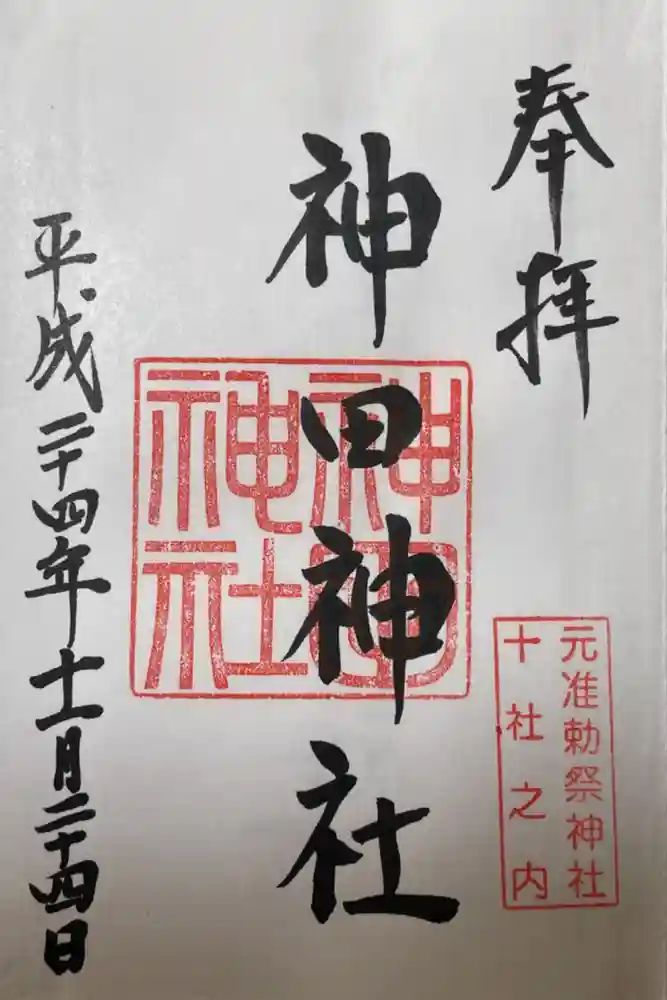 奉拝
元准勅祭神社
十社之内
神田神社
神田神社
平成二十四年十一月二十四日